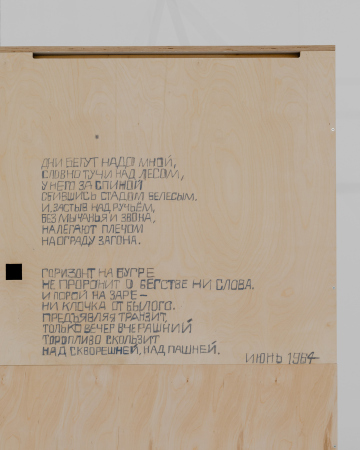 ДНИ БЕГУТ НАДО МНОЙ,
СЛОВНО ТУЧИ НАД ЛЕСОМ,
У НЕГО ЗА СПИНОЙ
СБИВШИСЬ СТАДОМ БЕЛЕСЫМ.
И, ЗАСТЫВ НАД РУЧЬЁМ,
БЕЗ МЫЧАНЬЯ И ЗВОНА,
НАЛЕГАЮТ ПЛЕЧОМ
НА ОГРАДУ ЗАГОНА.
ГОРИЗОНТ НА БУГРЕ
НЕ ПРОРОНИТ О БЕГСТВЕ НИ СЛОВА.
И ПОРОЙ НА ЗАРЕ –
НИ КЛОЧКА ОТ БЫЛОГО.
ПРЕДЪЯВЛЯЯ ТРАНЗИТ,
ТОЛЬКО ВЕЧЕР ВЧЕРАШНИЙ
ТОРОПЛИВО СКОЛЬЗИТ
НАД СКВОРЕШНЕЙ, НАД ПАШНЕЙ.
ИЮНЬ 1964